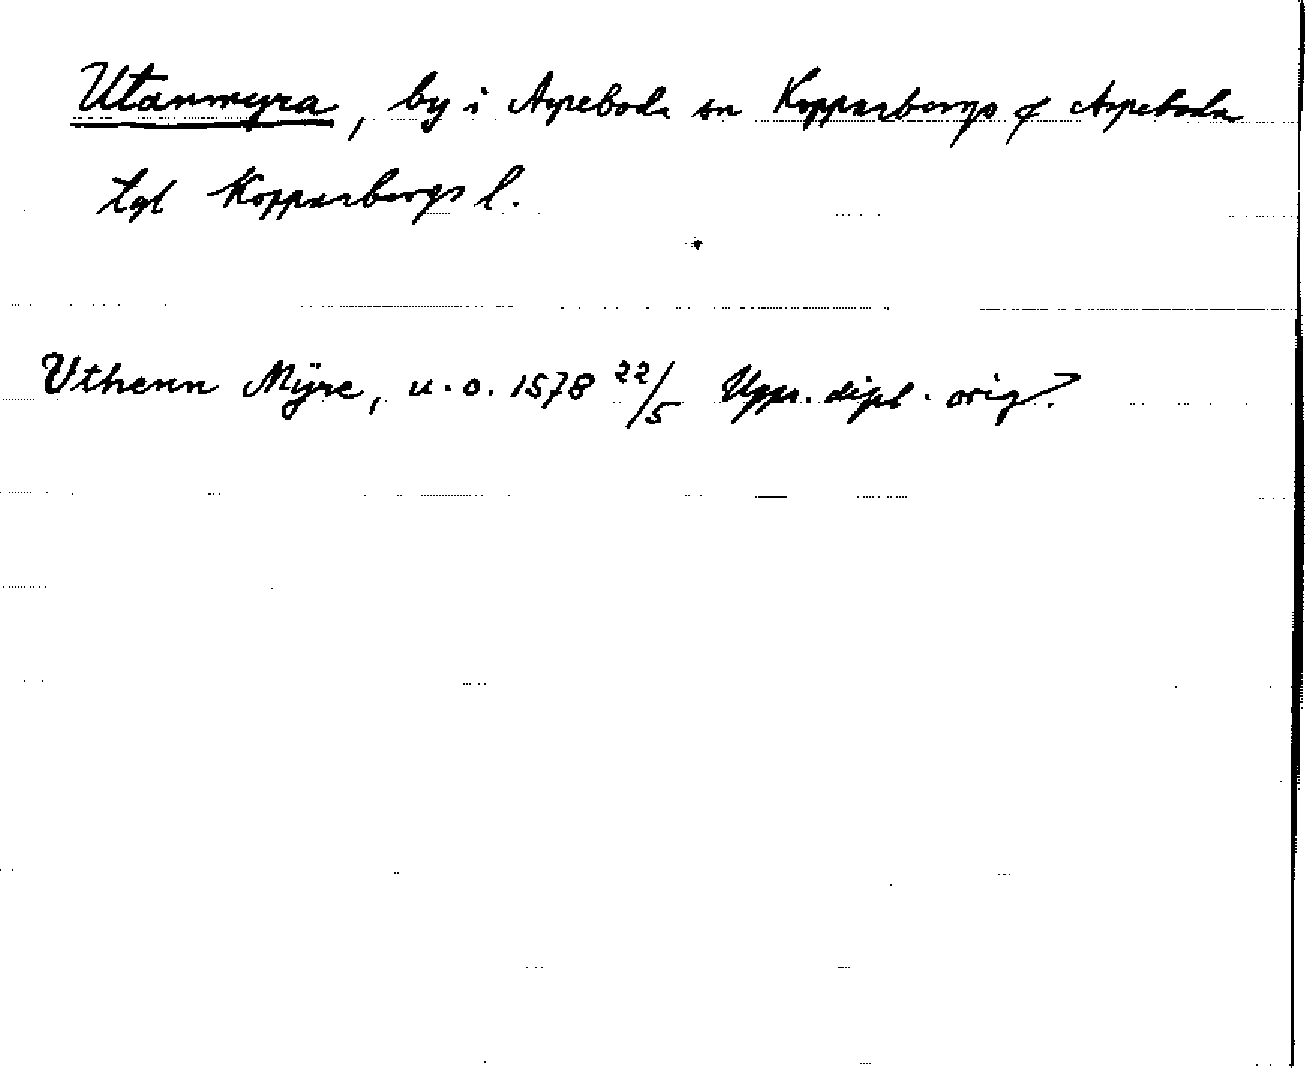 Utanmyra, by i Aspeboda sn Kopparbergs o Aspeboda
tgl Kopparbergs l.
Vthenn Mÿre, u. o. 1578 22/5 Upps. dipl. orig.